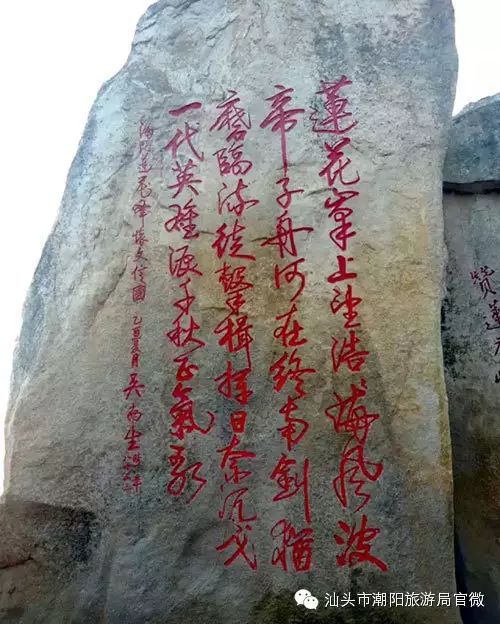 蓮花峯上望浩々海風波
帝子舟何在終南劍猶
磨臨流徒擊楫揮日奈沉戈
一代英雄淚千秋正氣歌
蓮花峰懷文信國 乙丑夏月 吳南生
汕头市潮阳旅游局官微